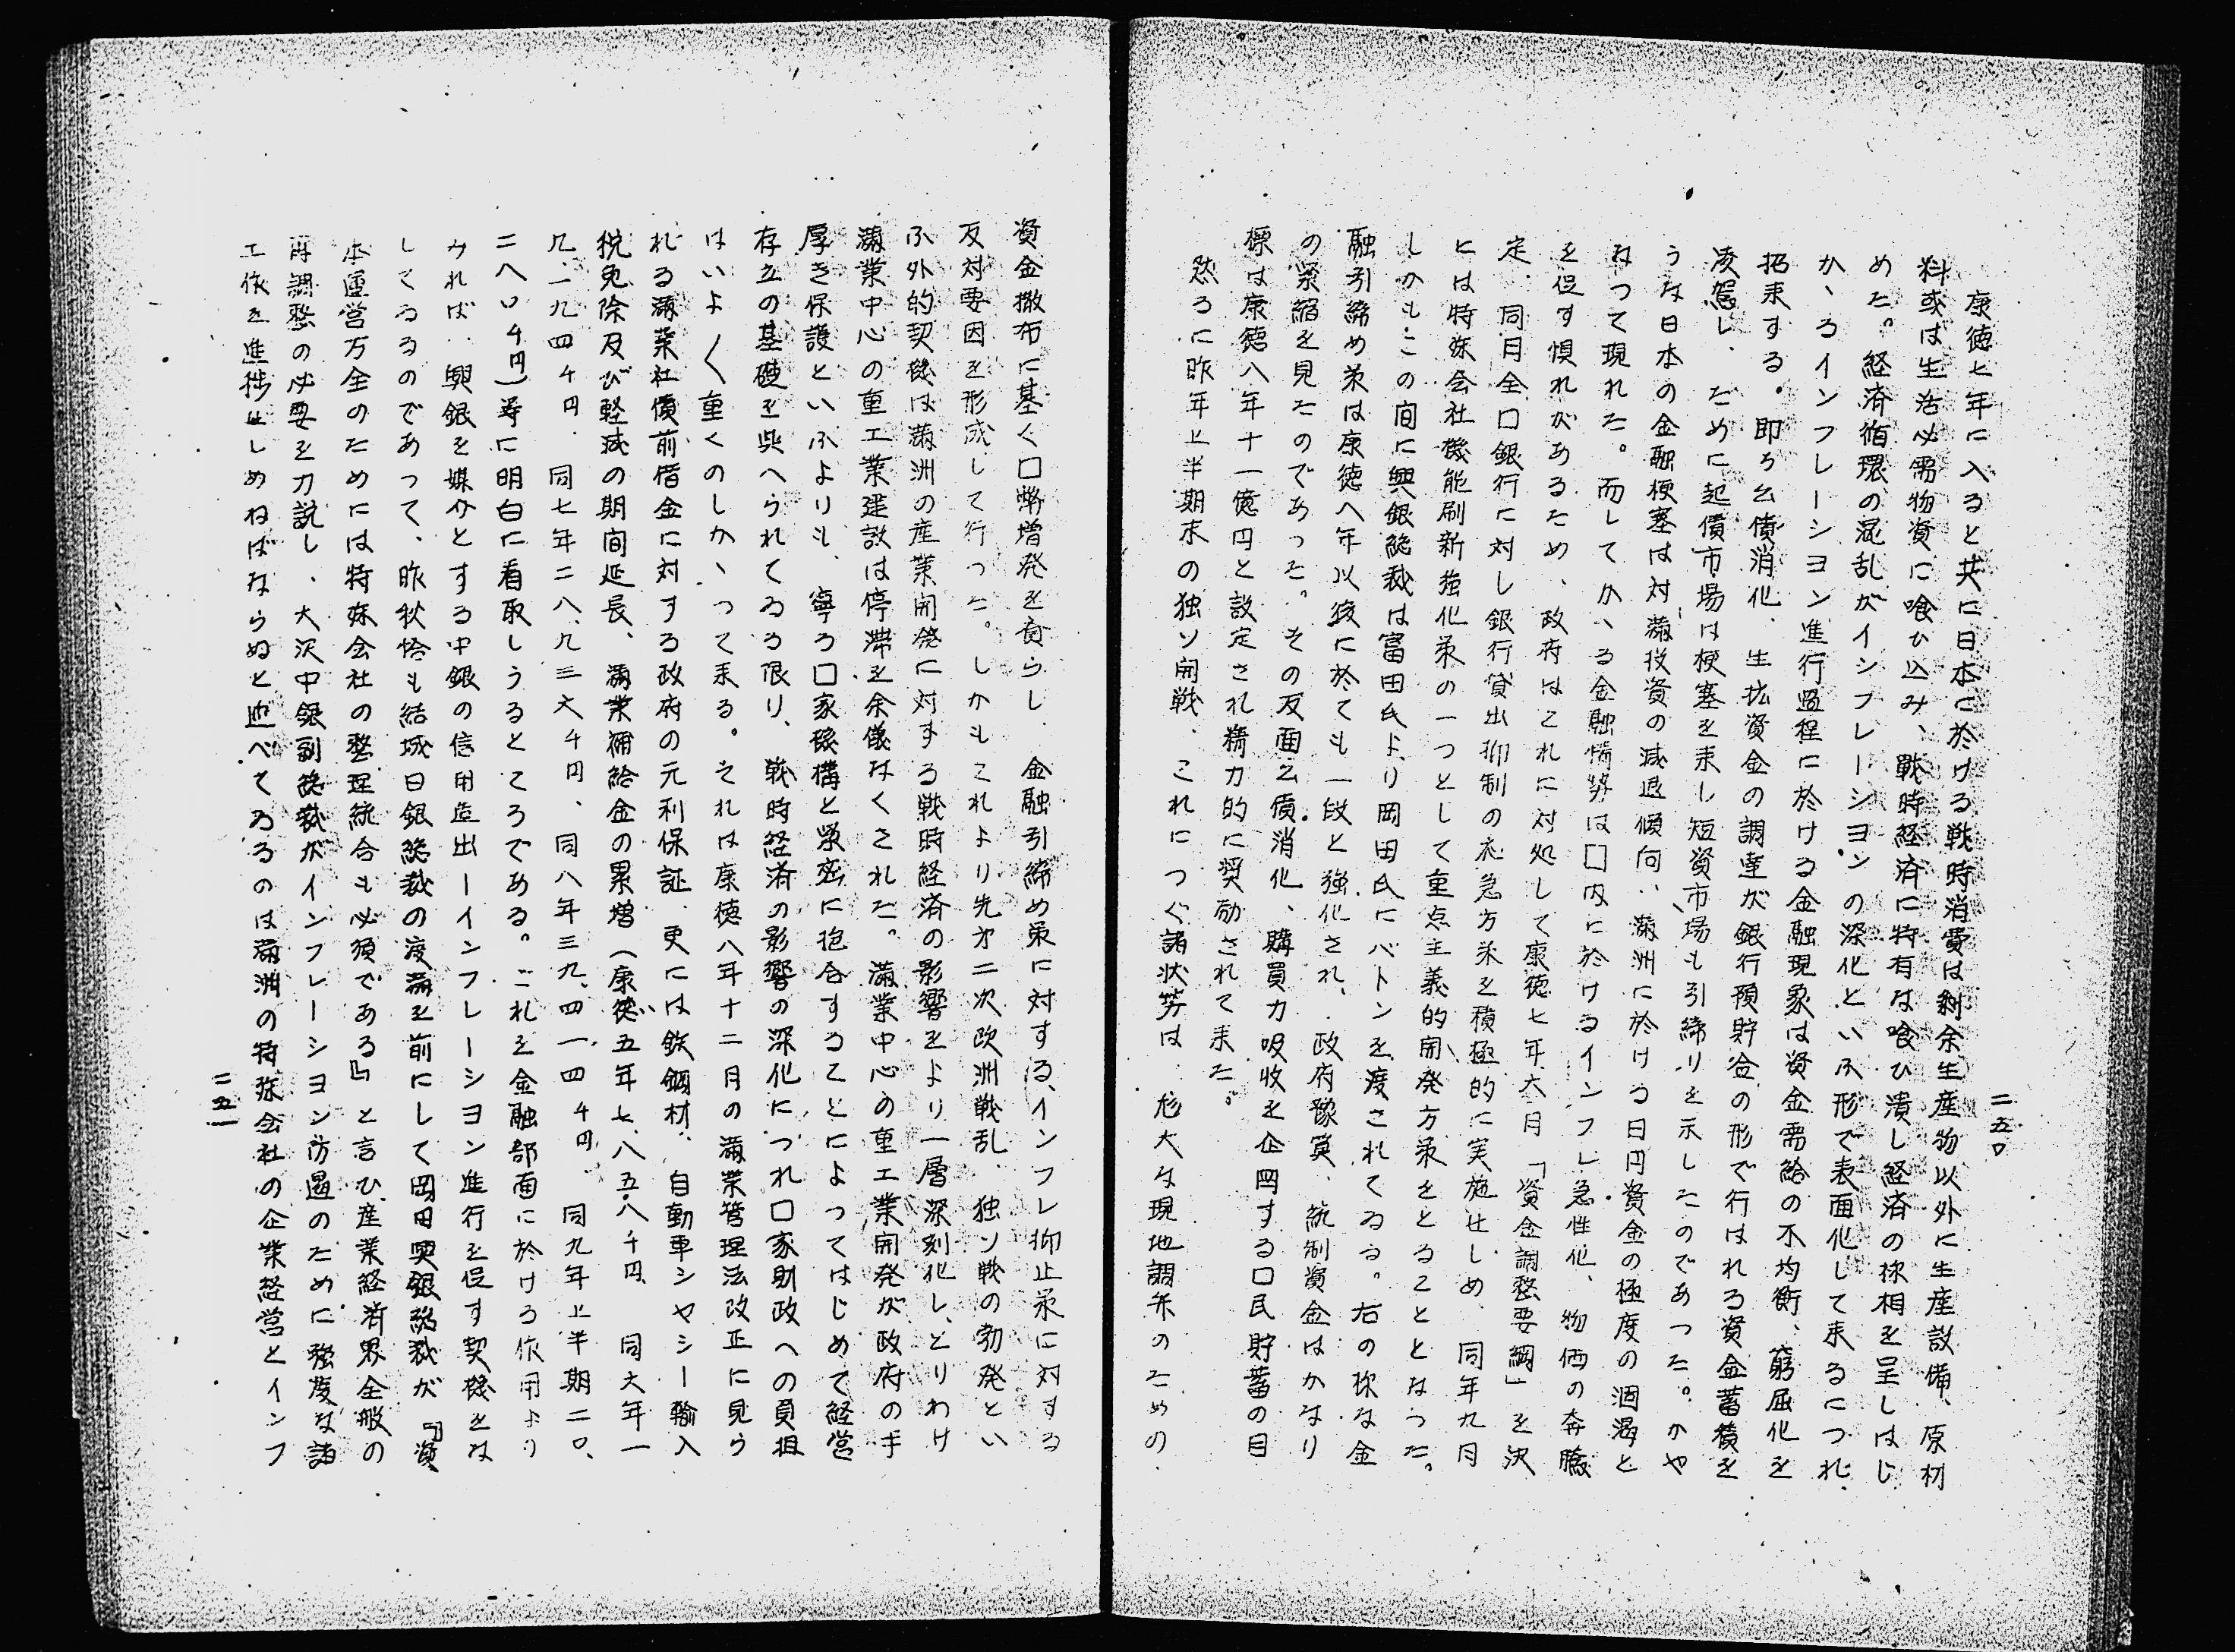 二五〇
康徳七年に入ると共に日本に於ける戦時消費は剰余生産物以外に生産設備、原材
料或ば生活必需物資に喰ひ込み、戦時経済に特有な喰ひ潰し経済の様相を呈しはじ
めた。経済循環の混乱がインフレーシヨンの深化といふ形で表面化して来るにつれ、
かゝるインフレーシヨン進行過程に於ける金融現象は資金需給の不均衡、窮屈化を
招来する。即ち公債消化、生拡資金の調達が銀行預貯金の形で行はれる資金蓄積を
凌駕し、ために起債市場は梗塞を来し短資市場も引締りを示したのであつた。かや
うな日本の金融梗塞は対満投資の減退傾向、満洲に於ける日円資金の極度の涸渇と
なつて現れた。而してかゝる金融情勢は囗内に於けるインフレ急性化、物価の奔騰
を促す惧れがあるため、政府はこれに対処して康徳七年六月「資金調整要綱」を決
定、同月全囗銀行に対し銀行貸出抑制の応急方策を積極的に実施せしめ、同年九月
には特殊会社機能刷新強化策の一つとして重点主義的開発方策をとることとなつた。
しかもこの間に興銀総裁は富田氏より岡田氏にバトンを渡されてゐる。右の様な金
融引締め策は康徳八年以後に於ても一段と強化され、政府豫算、統制資金はかなり
の緊縮を見たのであつた。その反面公債消化、購買力吸收を企図する囗民貯蓄の目
標は康徳八年十一億円と設定され精力的に奨励されて来た。
然るに昨年上半期末の独ソ開戦、これにつぐ諸状勢は、尨大な現地調弁のための
資金撒布に基く囗幣増発を齎らし、金融引締め策に対する、インフレ抑止策に対する
反対要因を形成して行つた。しかもこれより先才二次欧洲戦乱、独ソ戦の勃発とい
ふ外的契機は満洲の産業開発に対する戦時経済の影響をより一層深刻化し、とりわけ
満業中心の重工業建設は停滞を余儀なくされた。満業中心の重工業開発が政府の手
厚き保護といふよりも、寧ろ囗家機構と緊密に抱合することによつてはじめて経営
存立の基礎を与へられてゐる限り、戦時経済の影響の深化につれ囗家財政への負担
はいよ〱重くのしかゝつて来る。それは康徳八年十二月の満業管理法改正に見ら
れる満業社債前借金に対する政府の元利保証、更には鉄鋼材、自動車シヤシー輸入
税免除及び軽減の期間延長、満業補給金の累増（康徳五年七、八五八千円、同六年一
九、一九四千円、同七年二八、九三六千円、同八年三九、四一四千円、同九年上半期二〇、
二八〇千円）等に明白に看取しうるところである。これを金融部面に於ける作用より
みれば、興銀を媒介とする中銀の信用造出ーインフレーシヨン進行を促す契機とな
してゐるのであつて、昨秋恰も結城日銀総裁の渡満を前にして岡田興銀総裁が『資
本運営万全のためには特殊会社の整理統合も必須である』と言ひ、産業経済界全般の
再調整の必要を力説し、大沢中銀副総裁がインフレーシヨン防遏のために強度な諸
工作を進捗せしめねばならぬと述べてゐるのは満洲の特殊会社の企業経営とインフ
二五一